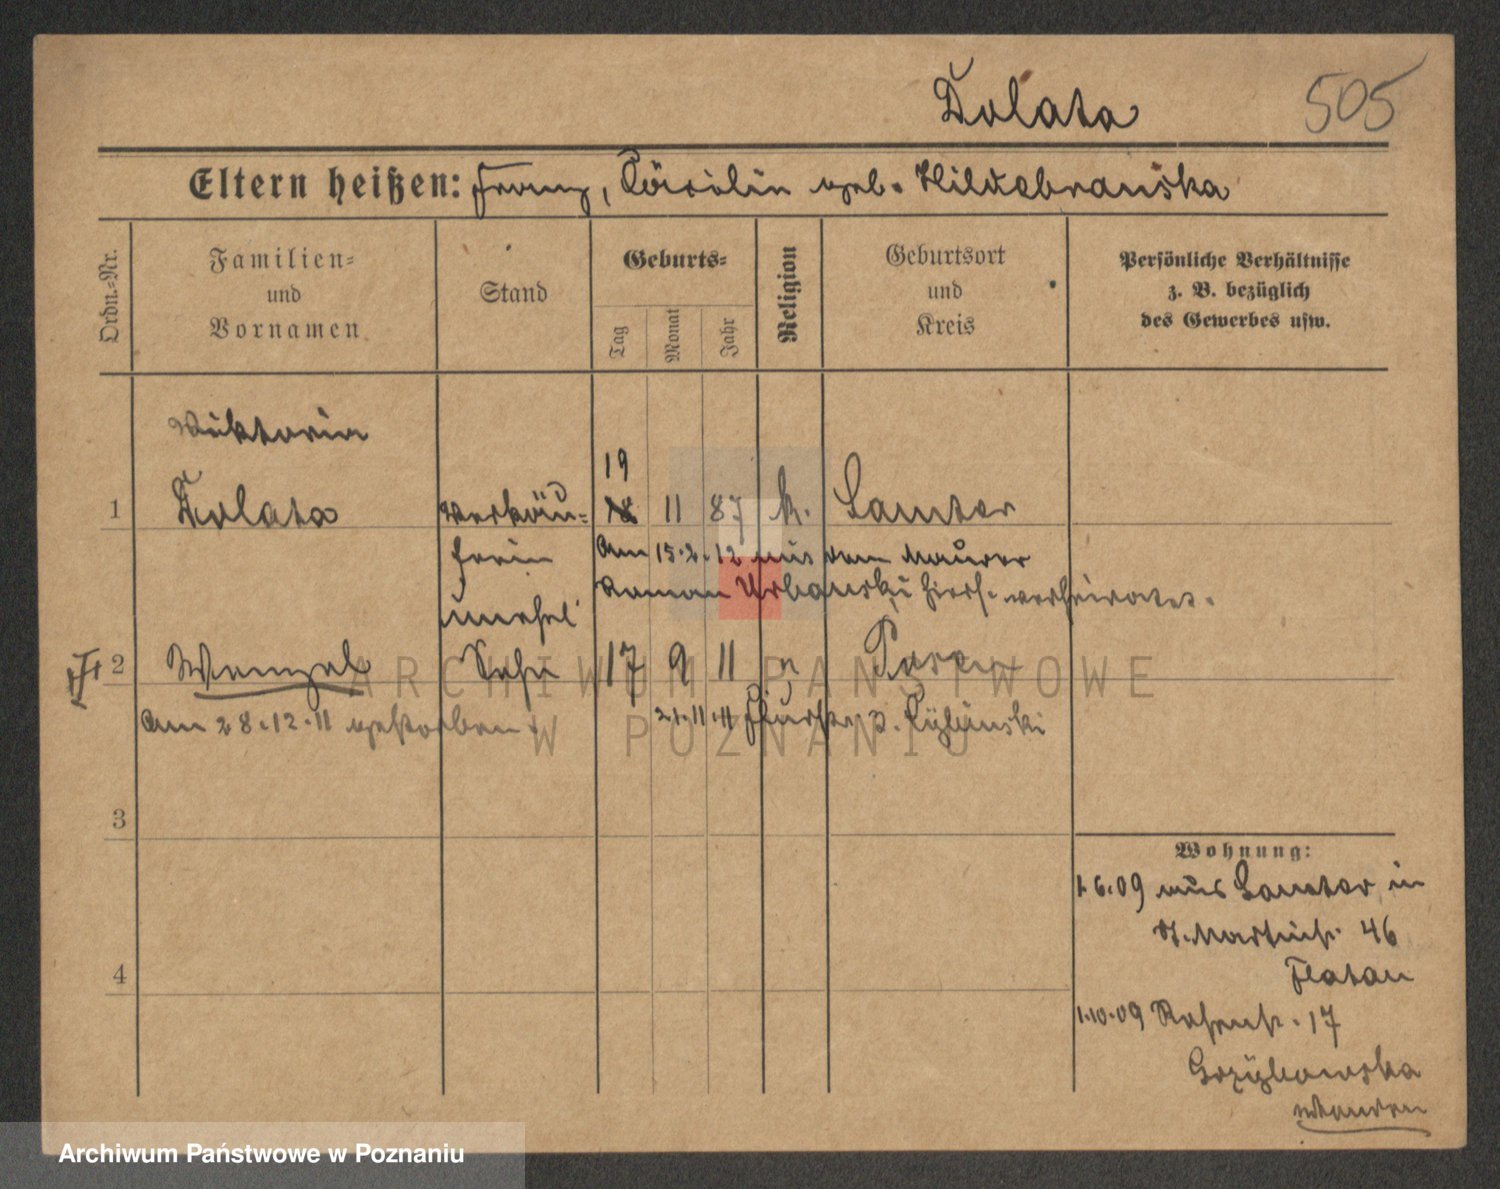 Dolata 505
Eltern heißen: Franz, Cäcilin geb. Hildebranska
Ordn.-Nr.
Familien-
und
Vornamen
Stand
Geburts-
Tag
Monat
Jahr
Religion
Geburtsort
und
Kreis
Persönliche Verhältnisse
z. B. bezüglich
des Gewerbes usw.
Viktoria
19
1 Dolata Verkäu- 18 11 87 k. Samter
ferin Am 15.2.12 mit dem Maurer
Roman Urbanski hiers. verheiratet.
unehel
2 Wenzel Sohn 17 9 11 " Posen
Am 28.12.11 gestorben. 21.11.11
3
4
Wohnung:
1.6.09 aus Samter in
St. Martinstr. 46
Flatau
1.10.09 Rosenstr. 17
Grzybowska
ARCHIWUM PAŃSTWOWE
W POZNANIU
Archiwum Państwowe w Poznaniu